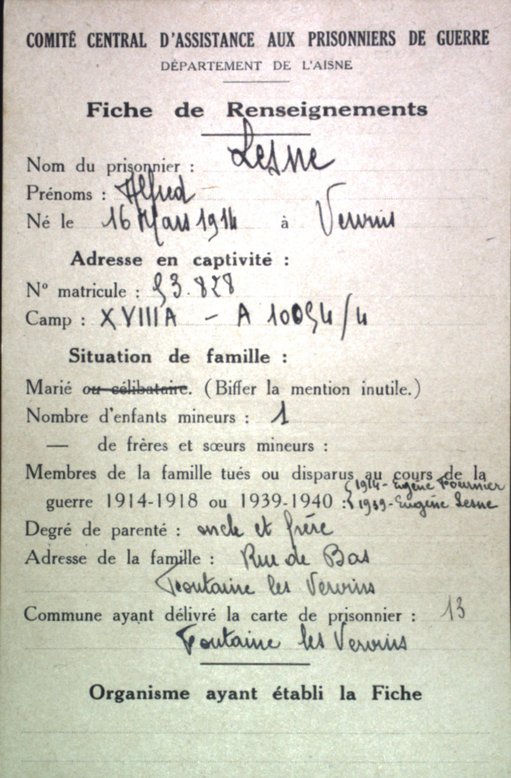 COMITÉ CENTRAL D'ASSISTANCE AUX PRISONNIERS DE GUERRE
DÉPARTEMENT DE L'AISNE
Fiche de Renseignements
Nom du prisonnier : Lesne
Prénoms : Alfred
Né le 16 Mars 1914 à Vervins
Adresse en captivité :
N° matricule : 53.878
Camp : XVIIIA - A 10054/4
Situation de famille :
Marié ou célibataire. (Biffer la mention inutile.)
Nombre d'enfants mineurs : 1
— de frères et sœurs mineurs :
Membres de la famille tués ou disparus au cours de la
guerre 1914-1918 ou 1939-1940 : { 1914 - Eugène Fournier
1939 - Eugène Lesne
Degré de parenté : oncle et frère
Adresse de la famille : Rue de Bas
Fontaine les Vervins
Commune ayant délivré la carte de prisonnier : 13
Fontaine les Vervins
Organisme ayant établi la Fiche